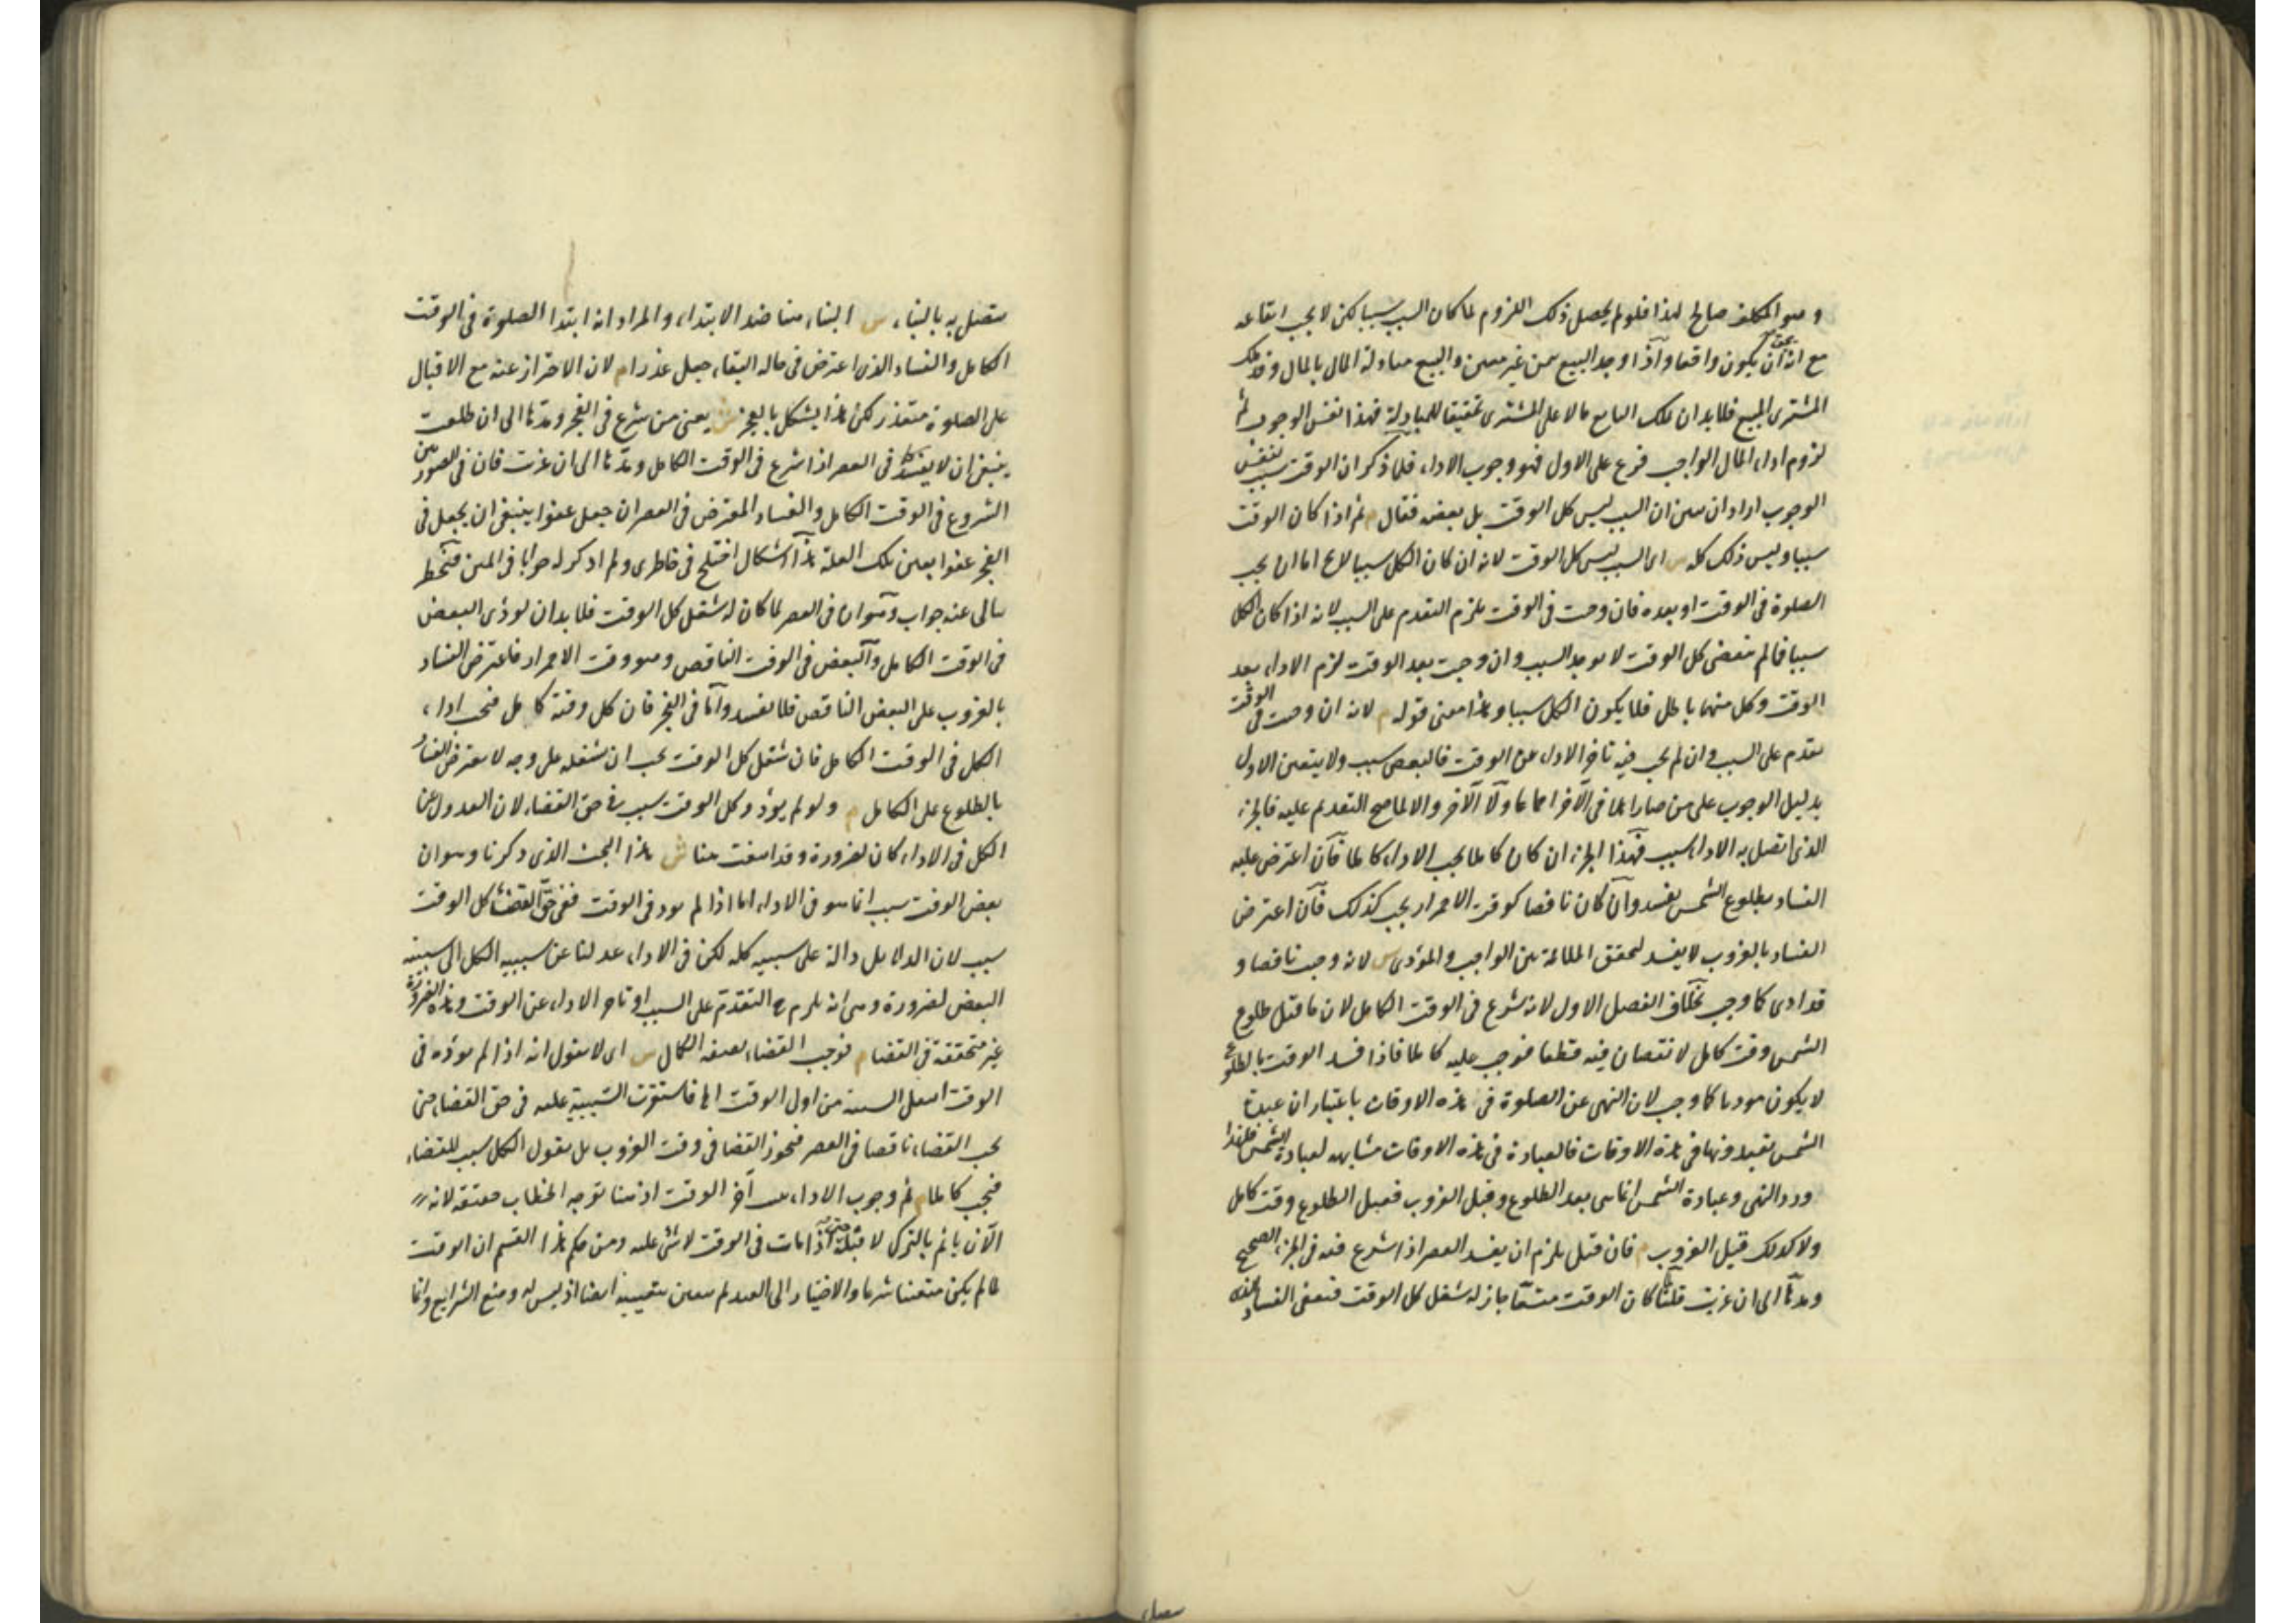 و هو المكلف صالح لهذا فلو لم يحصل ذلك اللزوم لما كان السبب سببا لكن لا يجب ايقاعه
مع انه يجب ان يكون واقعا واذا وجد البيع بثمن غير معين والبيع مبادلة المال بالمال وقد ملك
المشترى المبيع فلا بد ان يملك البايع مالا على المشترى تحقيقا للمبادلة فهذا نفس الوجوب ثم
لزوم اداء المال الواجب فرع على الاول فهو وجوب الاداء فلما ذكر ان الوقت سبب لنفس
الوجوب اراد ان يبين ان السبب ليس كل الوقت بل بعضه فقال م ثم اذا كان الوقت
سببا وليس ذلك كله س اى السبب ليس كل الوقت لانه ان كان الكل سببا لا يخ اما ان يجب
الصلوة فى الوقت او بعده فان وجبت فى الوقت يلزم التقدم على السبب لانه اذا كان الكل
سببا فما لم ينقض كل الوقت لا يوجد السبب وان وجبت بعد الوقت لزم الاداء بعد
الوقت وكل منهما باطل فلا يكون الكل سببا وهذا معنى قوله م لانه ان وجبت فى الوقت
تقدم على السبب وان لم يجب فيه تاخر الاداء عن الوقت فالبعض سبب ولا يتعين الاول
بدليل الوجوب على من صار اهلا فى الآخر اجماعا ولا الآخر والا لما صح التقديم عليه فالجزء
الذى اتصل به الاداء سبب فهذا الجزء ان كان كاملا يجب الاداء كاملا فان اعترض عليه
الفساد بطلوع الشمس يفسد وان كان ناقصا كوقت الاحمرار يجب كذلك فان اعترض
الفساد بالغروب لا يفسد لتحقق الملائمة بين الواجب والمؤدى س لانه وجب ناقصا و
قد ادى كما وجب بخلاف الفصل الاول لانه شرع فى الوقت الكامل لان ما قبل طلوع
الشمس وقت كامل لا نقصان فيه قطعا فوجب عليه كاملا فاذا فسد الوقت بالطلوع
لا يكون مؤديا كما وجب لان النهى عن الصلوة فى هذه الاوقات باعتبار ان عبدة
الشمس يعبدونها فى هذه الاوقات فالعبادة فى هذه الاوقات مشابهة لعبادة الشمس فلهذا
ورد النهى وعبادة الشمس انما هى بعد الطلوع وقبل الغروب فقبل الطلوع وقت كامل
ولا كذلك قبيل الغروب م فان قيل يلزم ان يفسد العصر اذا شرع فيه فى الجزء الصحيح
ومدها الى ان غربت قلنا لما كان الوقت متسعا جاز له شغل كل الوقت فيعفى الفساد الذى
متصل به بالبناء س البناء هنا ضد الابتداء والمراد انه ابتدا الصلوة فى الوقت
الكامل والفساد الذى اعترض فى حالة البقاء جعل عذرا م لان الاحتراز عنه مع الاقبال
على الصلوة متعذر لكن هذا يشكل بالفجر ش يعنى من شرع فى الفجر ومدها الى ان طلعت
ينبغى ان لا يفسد كما فى العصر اذا شرع فى الوقت الكامل ومدها الى ان غربت فان فى الصورتين
الشروع فى الوقت الكامل والفساد المعترض فى العصر ان جعل عفوا ينبغى ان يجعل فى
الفجر عفوا بعين تلك العلة هذا اشكال اختلج فى خاطرى ولم اذكر له جوابا فى المتن فيخطر
ببالى عنه جواب وهو ان فى العصر لما كان له شغل كل الوقت فلا بد ان يؤدى البعض
فى الوقت الكامل والبعض فى الوقت الناقص وهو وقت الاحمرار فاعترض الفساد
بالغروب على البعض الناقص فلا يفسد واما فى الفجر فان كل وقته كامل فيجب اداء
الكل فى الوقت الكامل فان شغل كل الوقت يجب ان يشغله على وجه لا يعترض الفساد
بالطلوع على الكامل م ولو لم يؤد وكل الوقت سبب فى حق القضاء لان العدول عن
الكل فى الاداء كان لضرورة وقد انتفت هنا ش هذا البحث الذى ذكرنا وهو ان
بعض الوقت سبب انما هو فى الاداء اما اذا لم يؤد فى الوقت ففى حق القضاء كل الوقت
سبب لان الدلايل دالة على سببية كله لكن فى الاداء عدلنا عن سببية الكل الى سببية
البعض لضرورة وهى انه يلزم ح التقدم على السبب او تاخر الاداء عن الوقت وهذه الضرورة
غير متحققة فى القضا م فوجب القضاء بصفة الكمال س اى لا نقول انه اذا لم يؤده فى
الوقت انتقل السببية من اول الوقت الى فاستقرت السببية عليه فى حق القضاء حتى
يجب القضاء ناقصا فى العصر فيجوز القضا فى وقت الغروب بل نقول الكل سبب للقضاء
فيجب كاملا م ثم وجوب الاداء آخر الوقت اذ هنا توجه الخطاب حقيقة لانه
الآن ياثم بالترك لا قبله حتى اذا مات فى الوقت لا شئ عليه ومن حكم هذا القسم ان الوقت
لما لم يكن متعينا شرعا والاختيار الى العبد لم يتعين بتعيينه ايضا اذ ليس له وضع الشرايع وانما